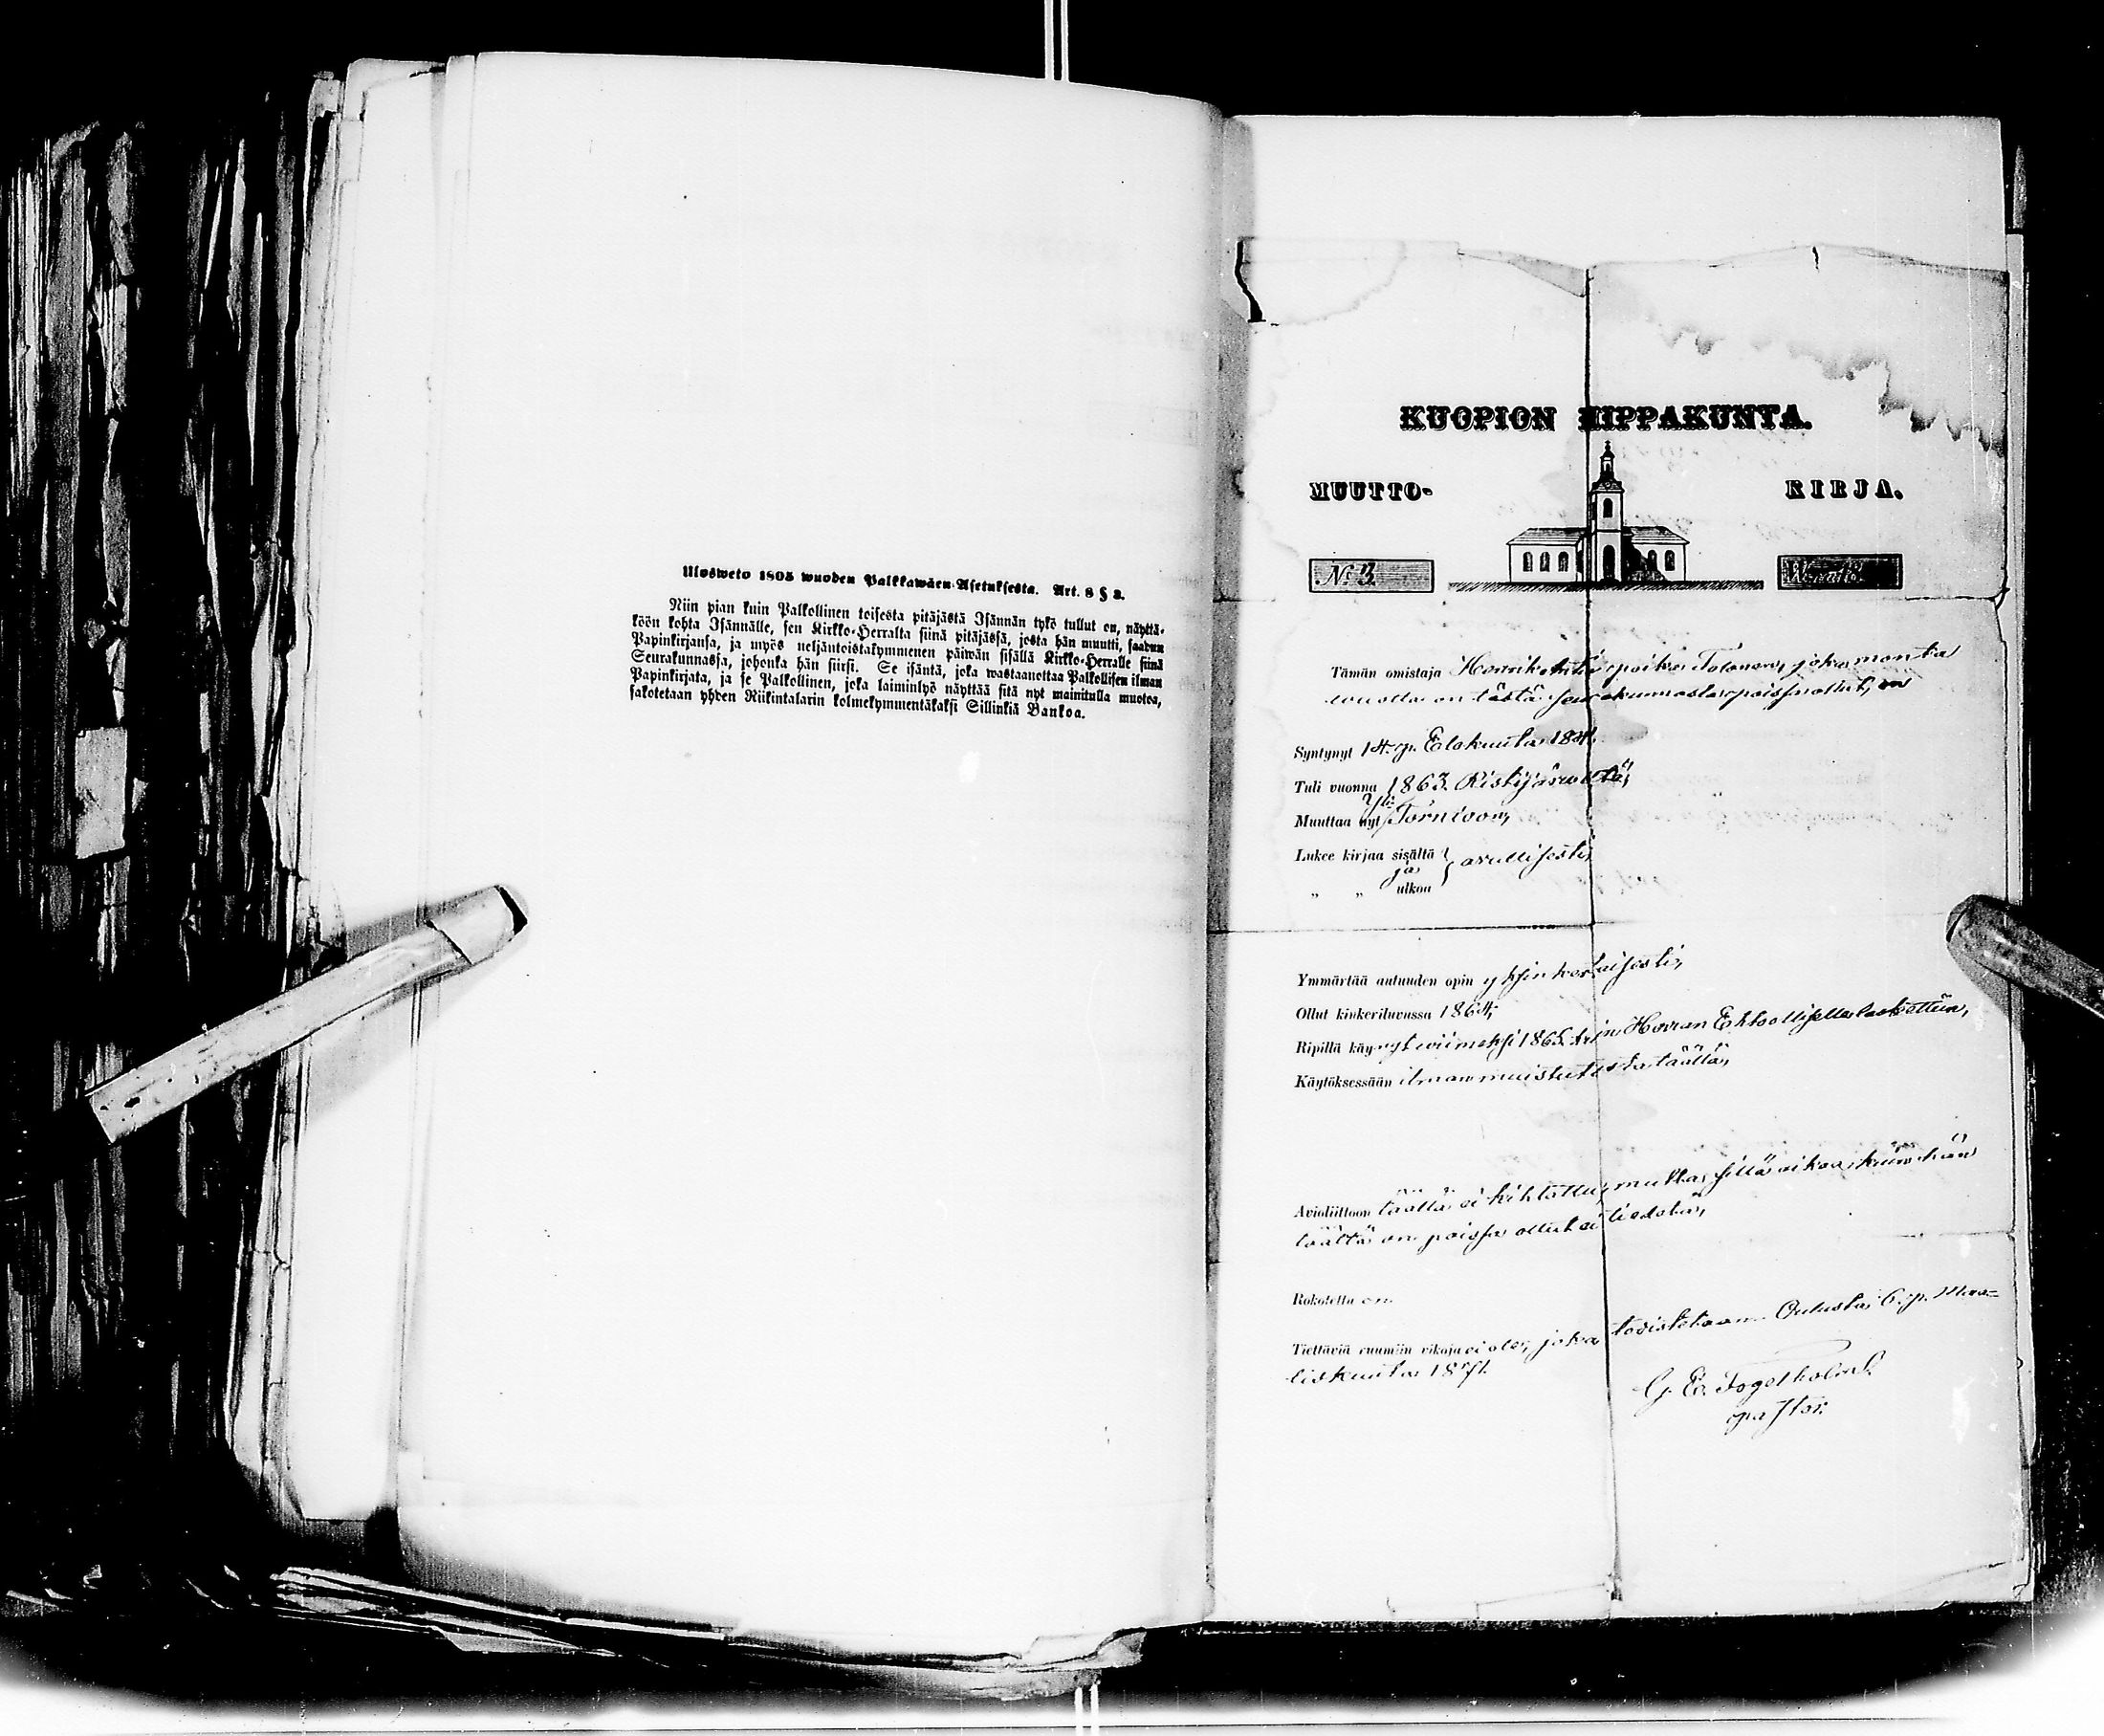 Ulosweto 1805 wuoden Palkkawäen-Asetuksesta. Art. 8 § 3.
Niin pian kuin Palkollinen toisesta pitäjästä Isännän tykö tullut on, näyttä-
köön kohta Isännälle, sen Kirkko-Herralta siinä pitäjässä, josta hän muutti, saadun
Papinkirjansa, ja myös neljäntoistakymmenen päiwän sisällä Kirkko-Herralle siinä
Seurakunnassa, johonka hän siirsi. Se isäntä, joka wastaanottaa Palkollisen ilman
Papinkirjata, ja se Palkollinen, joka laiminlyö näyttää sitä nyt mainitulla muotoa,
sakotetaan yhden Riikintalarin kolmekymmentäkaksi Sillinkiä Bankoa.
KUOPION HIPPAKUNTA.
MUUTTO- KIRJA.
N:o 3.
Tämän omistaja Henrik Antin poika Tolonen, joka monta
wuotta on tästä seurakunnasta poissa ollut, on
Syntynyt 14. p. Elokuuta 1841.
Tuli vuonna 1863. Ristijärveltä,
Yli
Muuttaa nyt Tornioon,
Lukee kirjaa sisältä } avullisesti,
ja
„ „ ulkoa
Ymmärtää autuuden opin yksinkertaisesti,
Ollut kinkeriluvussa 1864,
Ripillä käynyt wiimeksi 1865. Herran Ehtoolliselle laskettiin,
Käytöksessään ilman muistutusta täällä,
Avioliittoon täällä ei kihlattu, mutta sillä aikaa kuin hän
täältä on poissa ollut ei tiedetä,
Rokotettu on.
Tiettäviä ruumiin vikoja ei ole, joka todistetaan. Oulusta 6. p. Maa-
liskuuta 1871.
G. E. Fogelholm.
pastor.